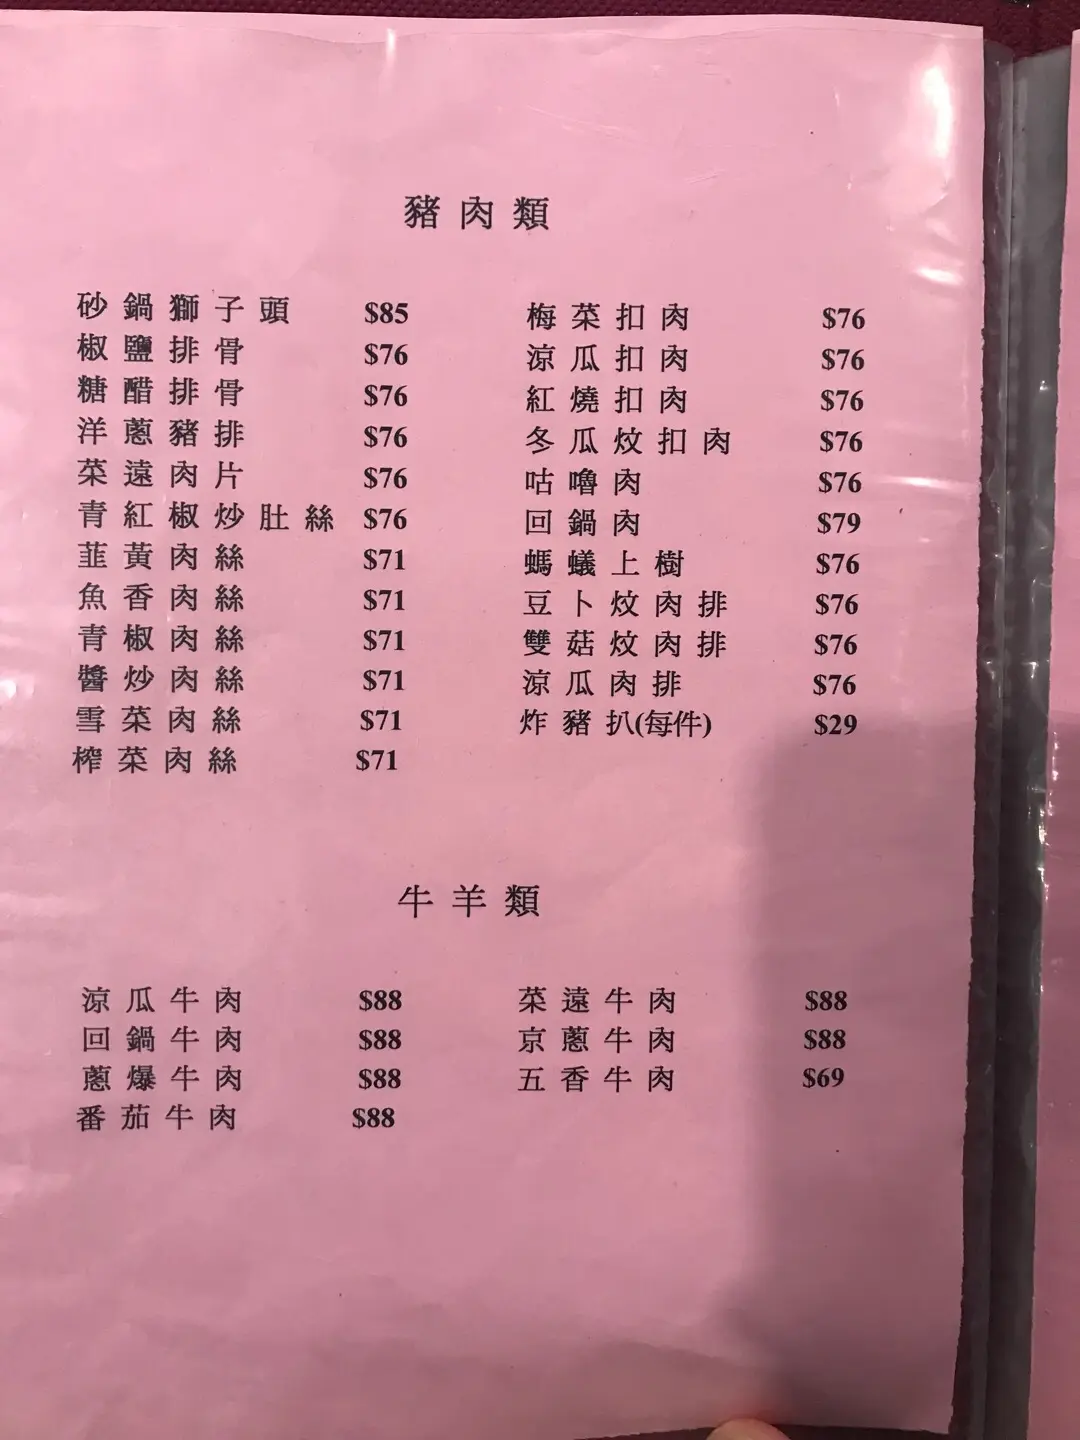 豬肉類
砂鍋獅子頭 $85
椒鹽排骨 $76
糖醋排骨 $76
洋蔥豬排 $76
菜遠肉片 $76
青紅椒炒肚絲 $76
韮黃肉絲 $71
魚香肉絲 $71
青椒肉絲 $71
醬炒肉絲 $71
雪菜肉絲 $71
榨菜肉絲 $71
梅菜扣肉 $76
涼瓜扣肉 $76
紅燒扣肉 $76
冬瓜炆扣肉 $76
咕嚕肉 $76
回鍋肉 $79
螞蟻上樹 $76
豆卜炆肉排 $76
雙菇炆肉排 $76
涼瓜肉排 $76
炸豬扒(每件) $29
牛羊類
涼瓜牛肉 $88
回鍋牛肉 $88
蔥爆牛肉 $88
番茄牛肉 $88
菜遠牛肉 $88
京蔥牛肉 $88
五香牛肉 $69